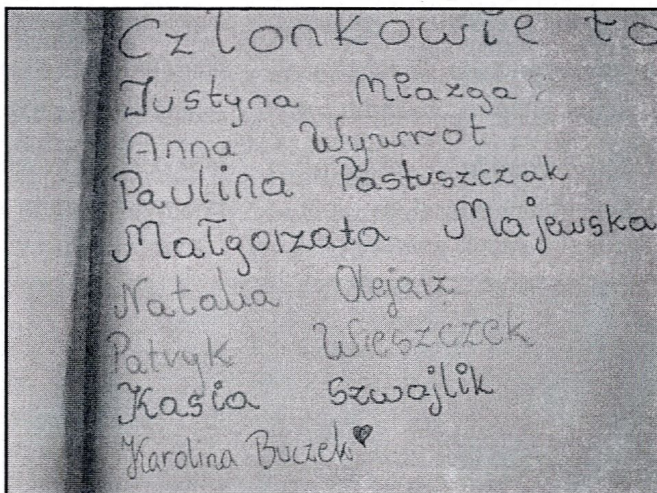 Członkowie to
Justyna Miazga
Anna Wywrot
Paulina Pastuszczak
Małgorzata Majewska
Natalia Olejarz
Patryk Wieszczek
Kasia Szwajlik
Karolina Buczek♥